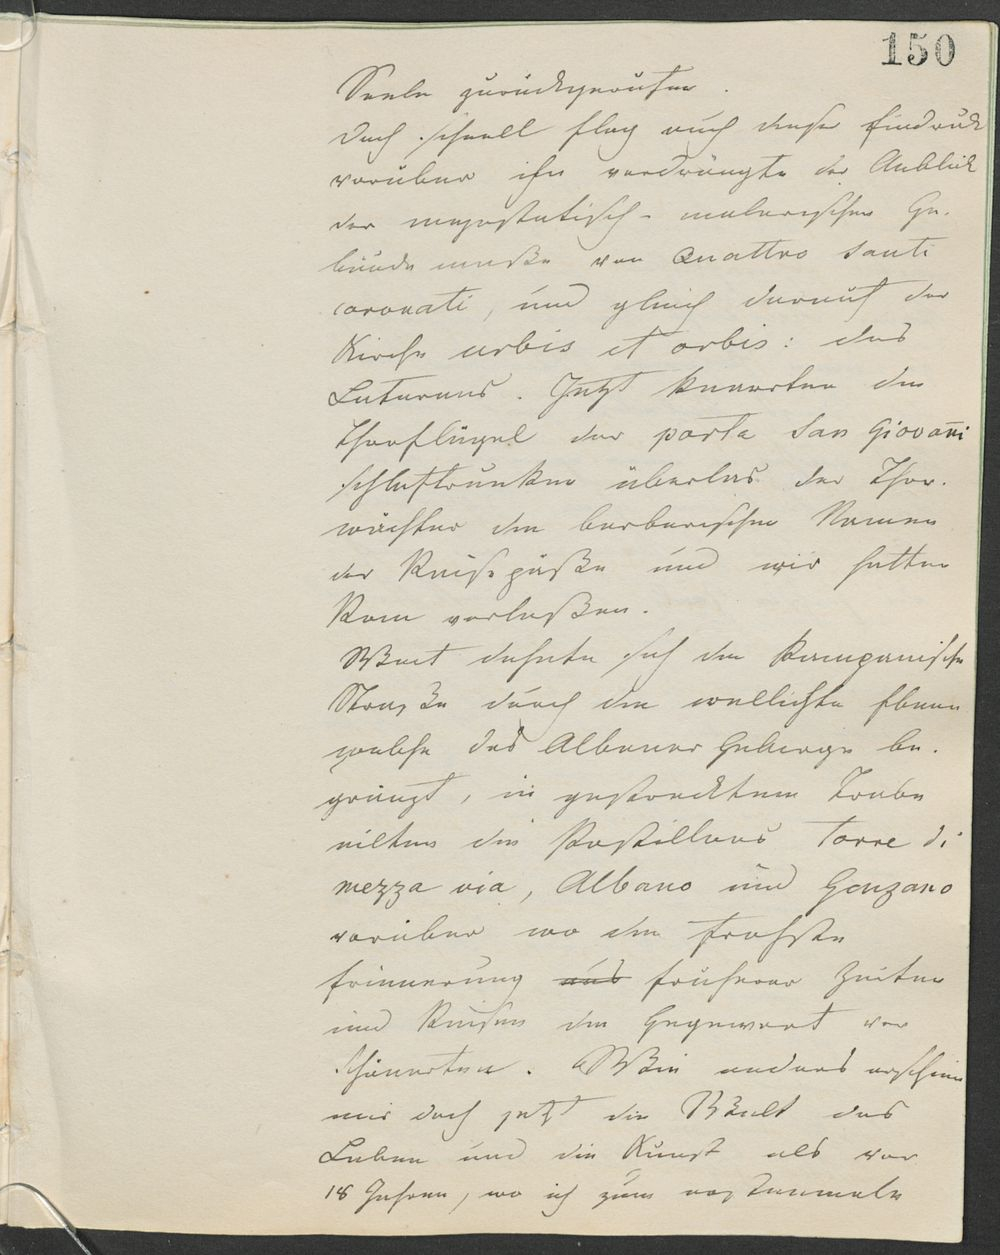 150
Seele zurückgerufen.
Doch schnell flog auch dieser Eindruck
vorüber ihn verdrängte der Anblick
der majestätisch-malerischen Ge-
bäude masse von Quattro santi
coronati, und gleich darauf der
Kirche urbis et orbis: des
Laterans. Jetzt knarrten die
Thorflügel der porta San Giovañi
schlaftrunken überlas der Thor-
wächter die barbarischen Namen
der Reisepäße und wir hatten
Rom verlaßen.
Weit dehnte sich die Kampanische
Straße durch die wellichte Ebene
welche das Albaner Gebirge be-
gränzt, in gestrecktem Trabe
eilten die Postillons Torre di
mezza via, Albano und Genzano
vorüber wo die froheste
Erinnerung aus früherer Zeiten
und Reisen die Gegenwart ver
schönerten. Wie anders erschien
mir doch jetzt die Welt das
Leben und die Kunst als vor
18 Jahren, wo ich zum erstenmale